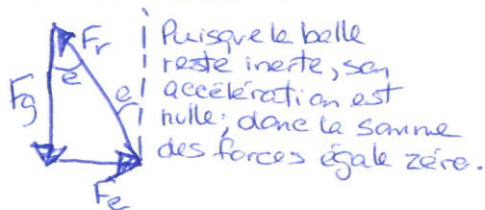 Fr
Fg
e
e
Fe
Puisque la balle
reste inerte, son
accélération est
nulle; donc la somme
des forces égale zéro.